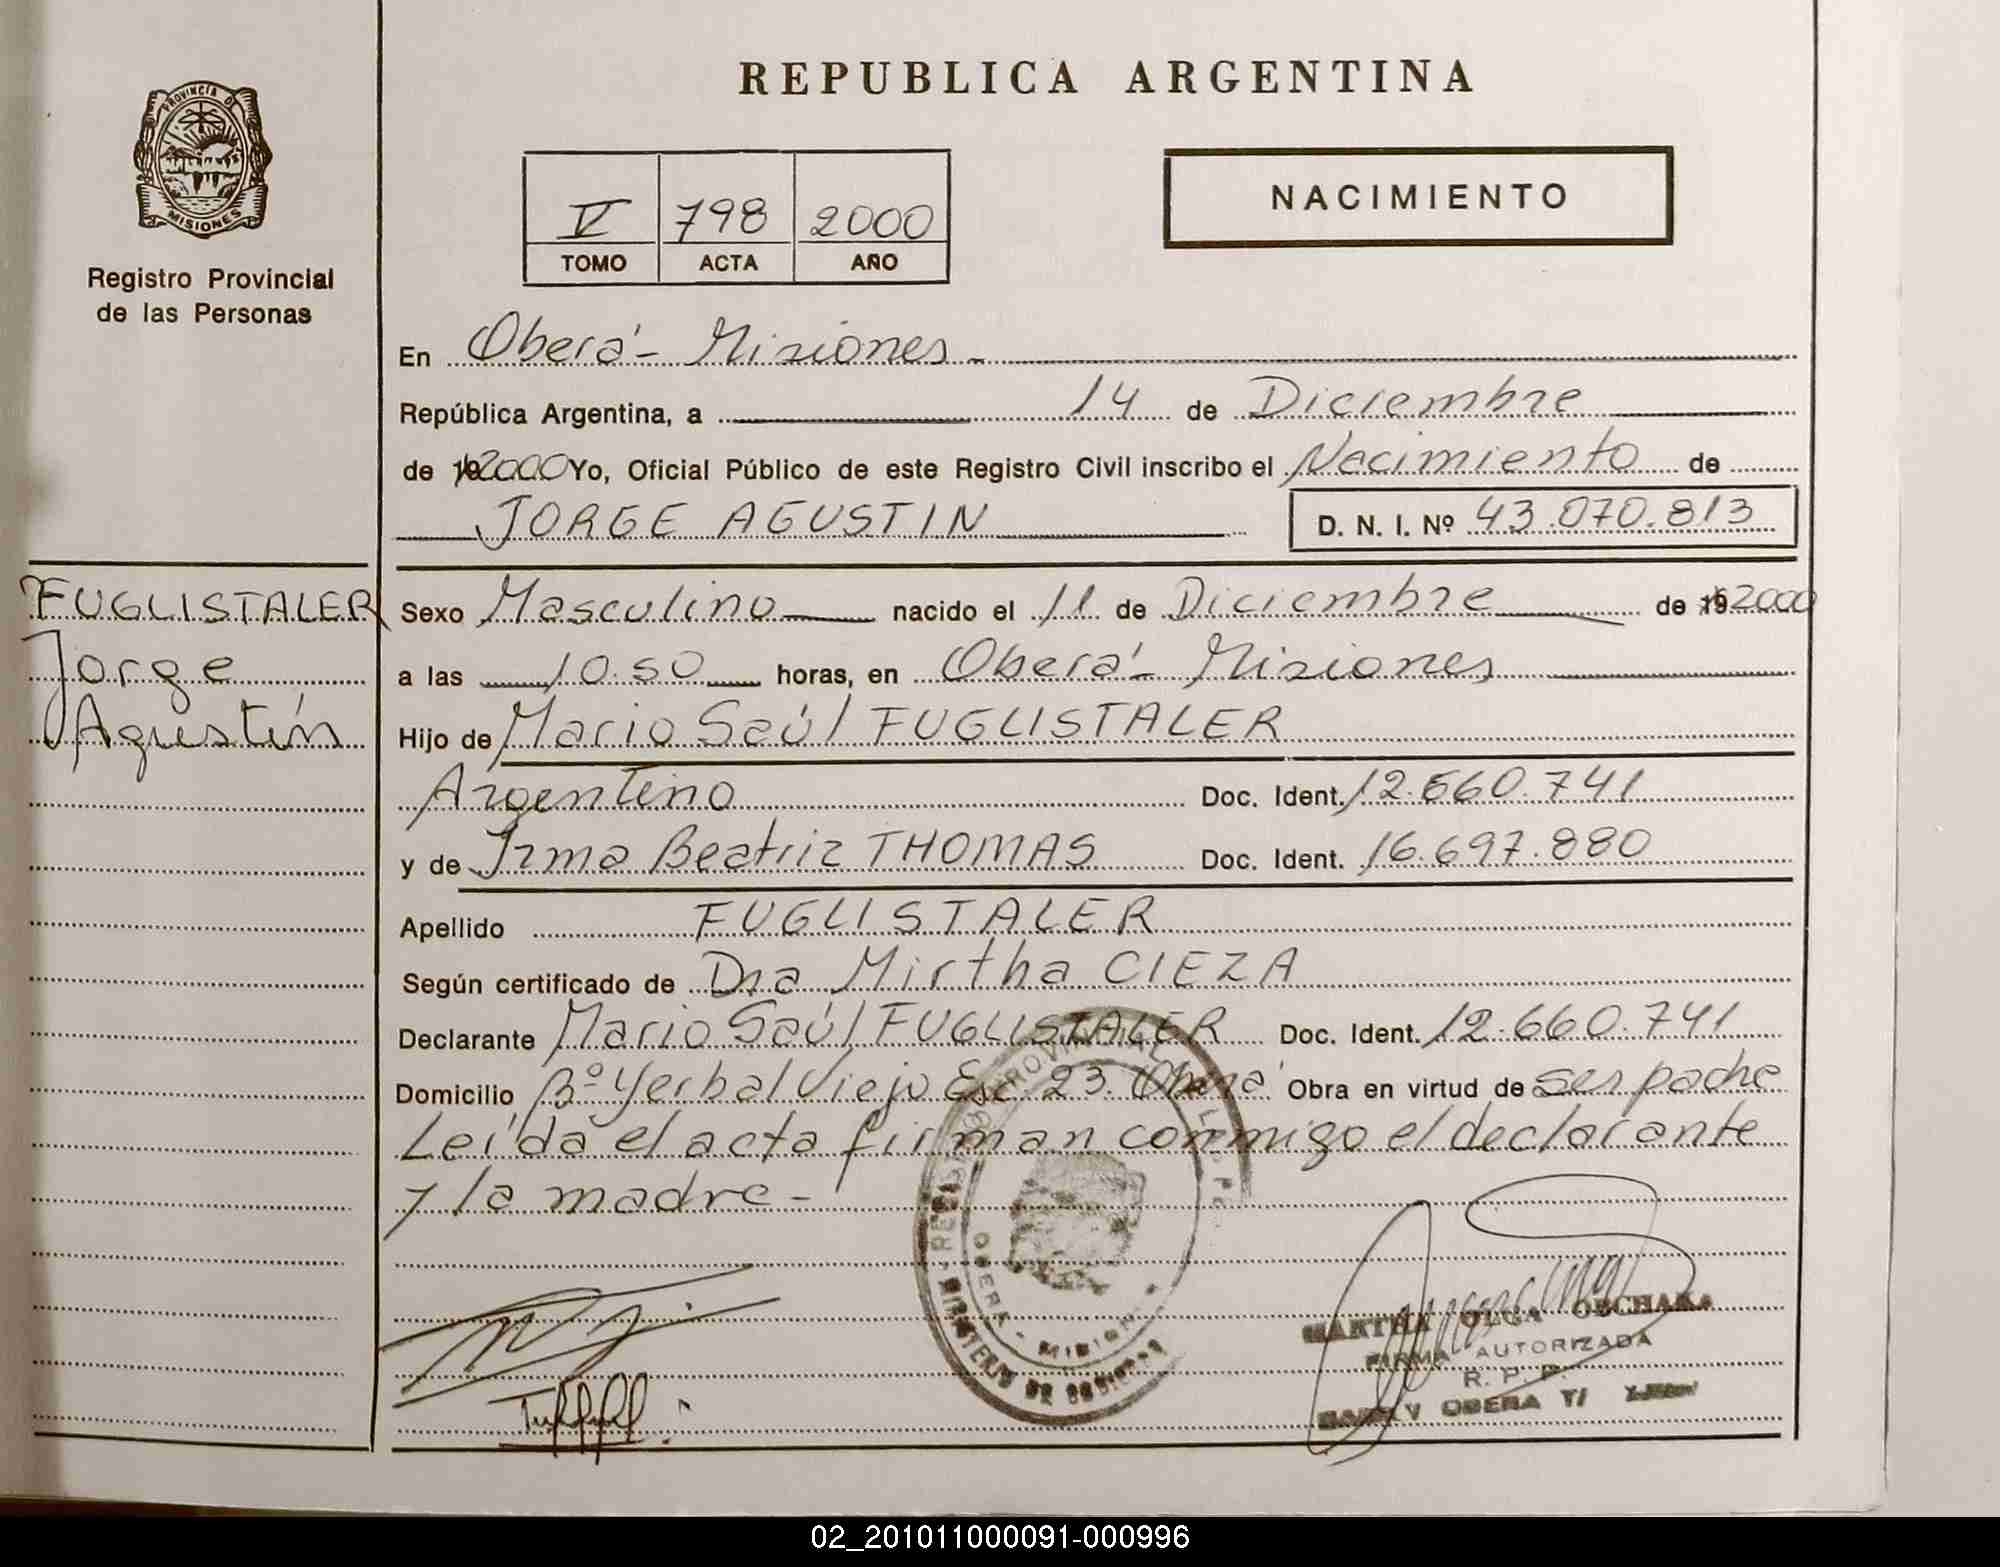 REPUBLICA ARGENTINA
PROVINCIA DE
MISIONES
Registro Provincial
de las Personas
V 798 2000
TOMO ACTA AÑO
NACIMIENTO
En Oberá - Misiones
República Argentina, a 14 de Diciembre
de 19 2000 Yo, Oficial Público de este Registro Civil inscribo el Nacimiento de
JORGE AGUSTIN D. N. I. Nº 43.070.813
FUGLISTALER
Jorge
Agustín
Sexo Masculino nacido el 11 de Diciembre de 19 2000
a las 10.50 horas, en Oberá - Misiones
Hijo de Mario Saúl FUGLISTALER
Argentino Doc. Ident. 12.660.741
y de Irma Beatriz THOMAS Doc. Ident. 16.697.880
Apellido FUGLISTALER
Según certificado de Dra Mirtha CIEZA
Declarante Mario Saúl FUGLISTALER Doc. Ident. 12.660.741
Domicilio Bº Yerbal Viejo Esc 23. Oberá Obra en virtud de ser padre
Leída el acta firman conmigo el declarante
y la madre -
OBERA - MISIONES
MARTHA OLGA OBCHAKA
FIRMA AUTORIZADA
R. P. P.
OBERA
02_201011000091-000996